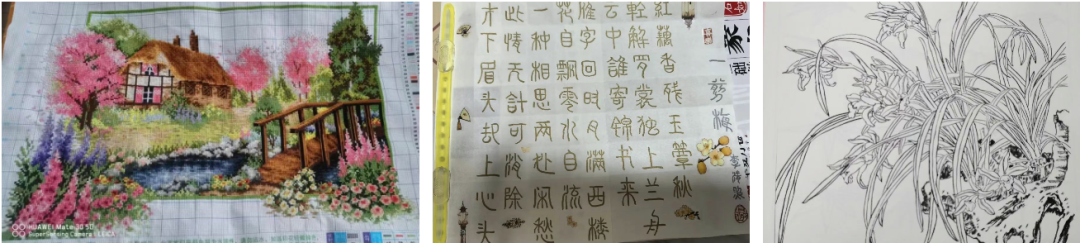 HUAWEI Mate 30 5G
SuperSensing Camera | LEICA
一剪梅
李清照
紅藕香残玉簟秋
輕解罗裳独上兰舟
云中誰寄锦书来
雁字回时月满西楼
花自飄零水自流
一种相思两处闲愁
此情无計可消除
才下眉头却上心头